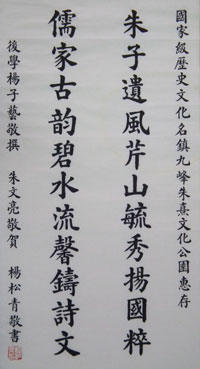 國家級歷史文化名鎮九峰朱熹文化公園惠存
朱子遺風芹山毓秀揚國粹
儒家古韵碧水流馨鑄詩文
後學楊子藝敬撰 朱文亮敬賀 楊松青敬書